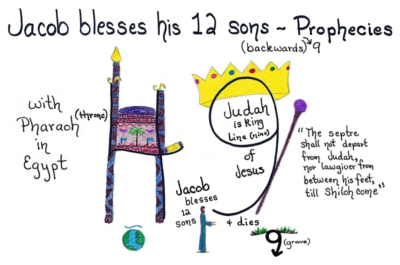 Jacob blesses his 12 sons ~ Prophecies
(backwards) 9
with
Pharaoh
in
Egypt
(throne)
Judah
is King
Line (nine)
of
Jesus
"The septre
shall not depart
from Judah,
nor lawgiver from
between his feet,
till Shiloh come"
Jacob
blesses
12
sons
+ dies
(grave)